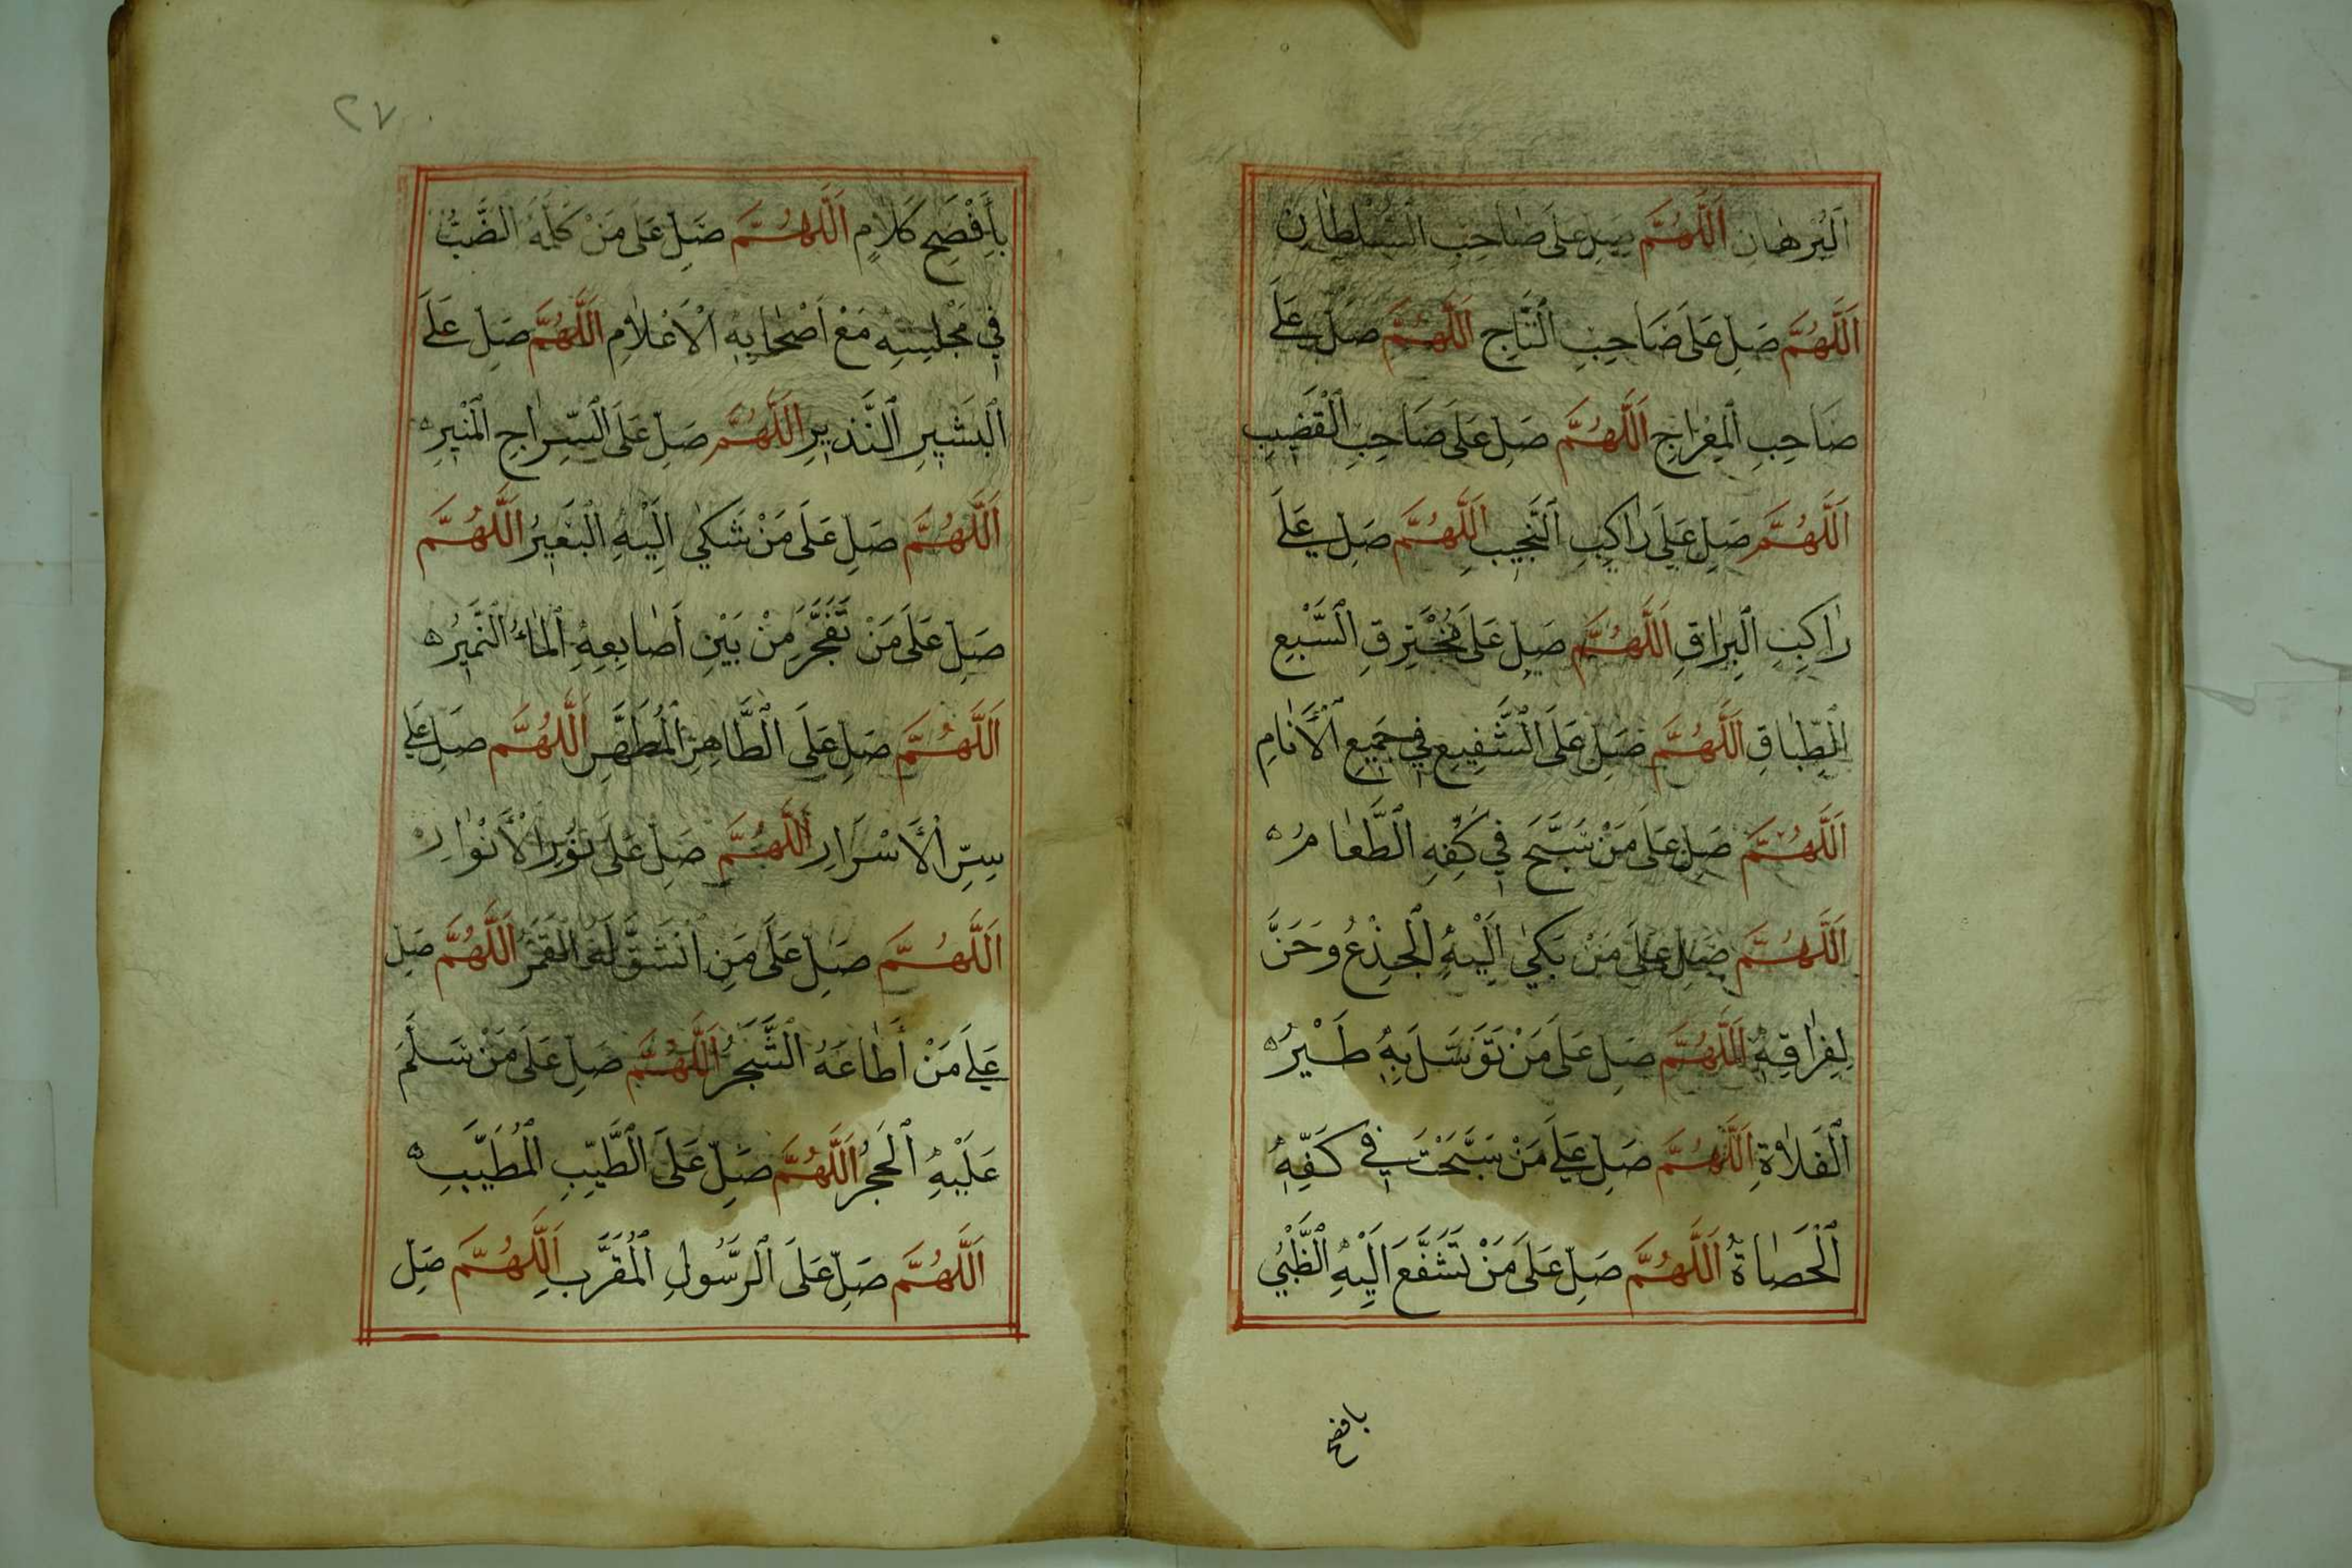 اَلْبُرْهَانِ اَللّٰهُمَّ صَلِّ عَلَى صَاحِبِ السُّلْطَانِ
اَللّٰهُمَّ صَلِّ عَلَى صَاحِبِ التَّاجِ اَللّٰهُمَّ صَلِّ عَلَى
صَاحِبِ الْمِعْرَاجِ اَللّٰهُمَّ صَلِّ عَلَى صَاحِبِ الْقَضِيبِ
اَللّٰهُمَّ صَلِّ عَلَى رَاكِبِ النَّجِيبِ اَللّٰهُمَّ صَلِّ عَلَى
رَاكِبِ الْبُرَاقِ اَللّٰهُمَّ صَلِّ عَلَى مُخْتَرِقِ السَّبْعِ
الطِّبَاقِ اَللّٰهُمَّ صَلِّ عَلَى الشَّفِيعِ فِي جَمِيعِ الْأَنَامِ
اَللّٰهُمَّ صَلِّ عَلَى مَنْ سَبَّحَ فِي كَفِّهِ الطَّعَامُ
اَللّٰهُمَّ صَلِّ عَلَى مَنْ بَكَى اِلَيْهِ الْجِذْعُ وَحَنَّ
لِفِرَاقِهِ اَللّٰهُمَّ صَلِّ عَلَى مَنْ تَوَسَّلَ بِهِ طَيْرُ
الْفَلَاةِ اَللّٰهُمَّ صَلِّ عَلَى مَنْ سَبَّحَتْ فِي كَفِّهِ
الْحَصَاةُ اَللّٰهُمَّ صَلِّ عَلَى مَنْ تَشَفَّعَ اِلَيْهِ الظَّبْيُ
بافصح
٢٧
بِأَفْصَحِ كَلَامٍ اَللّٰهُمَّ صَلِّ عَلَى مَنْ كَلَّمَهُ الضَّبُّ
فِي مَجْلِسِهِ مَعْ اَصْحَابِهِ الْاَعْلَامِ اَللّٰهُمَّ صَلِّ عَلَى
الْبَشِيرِ النَّذِيرِ اَللّٰهُمَّ صَلِّ عَلَى السِّرَاجِ الْمُنِيرِ
اَللّٰهُمَّ صَلِّ عَلَى مَنْ شَكَى اِلَيْهِ الْبَعِيرُ اَللّٰهُمَّ
صَلِّ عَلَى مَنْ تَفَجَّرَ مِنْ بَيْنِ أَصَابِعِهِ الْمَاءُ النَّمِيرُ
اَللّٰهُمَّ صَلِّ عَلَى الطَّاهِرِ الْمُطَهَّرِ اَللّٰهُمَّ صَلِّ عَلَى
سِرِّ الْأَسْرَارِ اَللّٰهُمَّ صَلِّ عَلَى نُورِ الْأَنْوَارِ
اَللّٰهُمَّ صَلِّ عَلَى مَنِ انْشَقَّ لَهُ الْقَمَرُ اَللّٰهُمَّ صَلِّ
عَلَى مَنْ أَطَاعَهُ الشَّجَرُ اَللّٰهُمَّ صَلِّ عَلَى مَنْ سَلَّمَ
عَلَيْهِ الْحَجَرُ اَللّٰهُمَّ صَلِّ عَلَى الطَّيِّبِ الْمُطَيَّبِ
اَللّٰهُمَّ صَلِّ عَلَى الرَّسُولِ الْمُقَرَّبِ اَللّٰهُمَّ صَلِّ